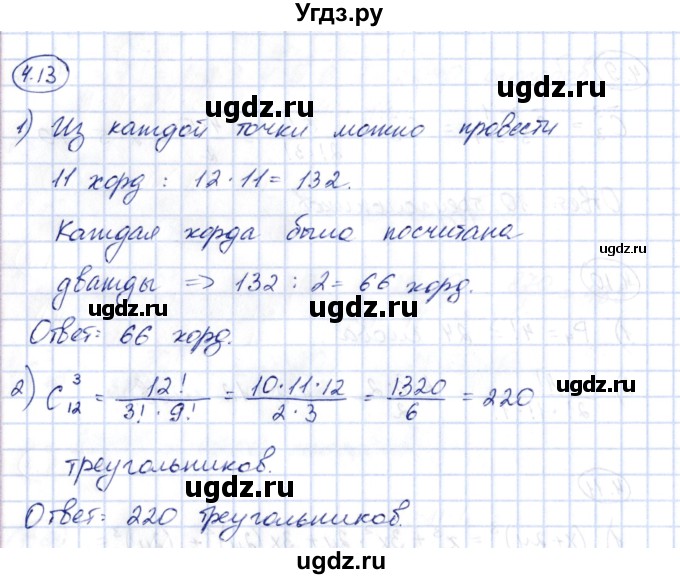 Угдз.ру
4.13
ugdz.ru ugdz.ru
1) Из каждой точки можно провести
11 хорд : 12·11 = 132.
ugdz.ru ugdz.ru
Каждая хорда была посчитана
дважды => 132 : 2 = 66 хорд.
ugdz.ru ugdz.ru
Ответ: 66 хорд.
2) C₁₂³ = 12!/(3!·9!) = (10·11·12)/(2·3) = 1320/6 = 220
ugdz.ru ugdz.ru
треугольников.
ugdz.ru ugdz.ru
Ответ: 220 треугольников.
ugdz.ru